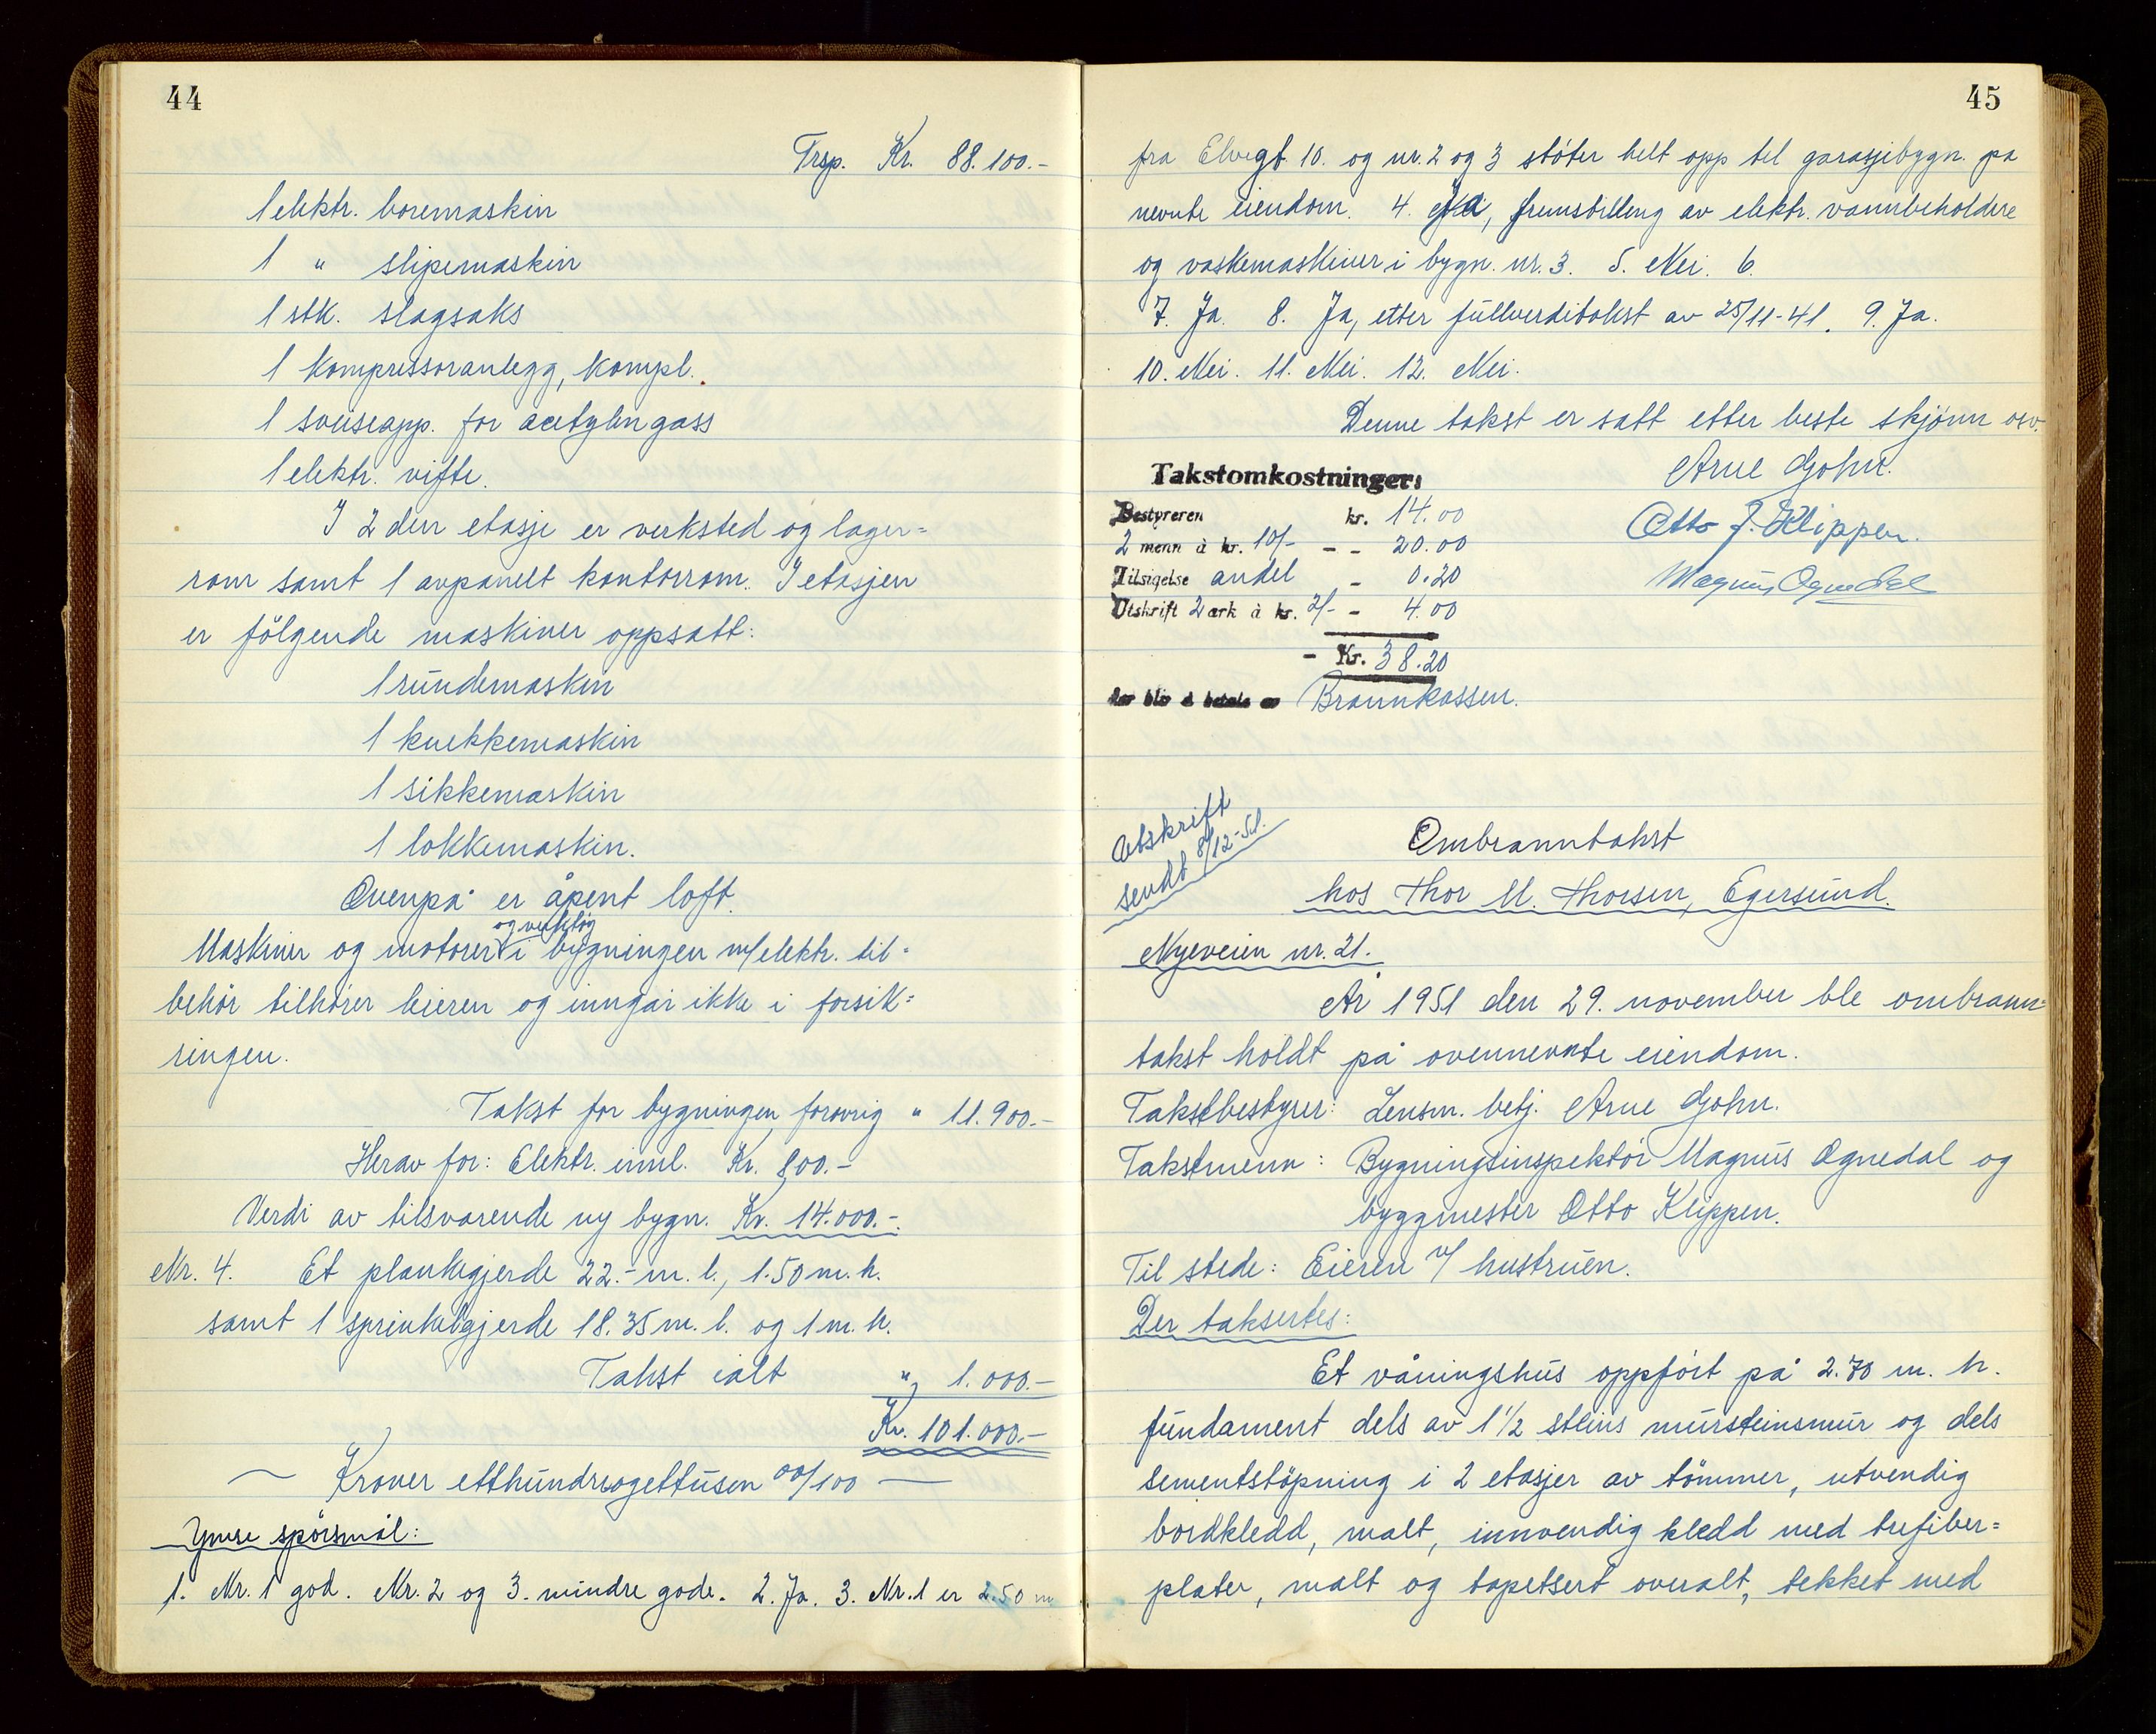 44
Trsp. Kr. 88.100.-
1 elektr. boremaskin
1 " slipemaskin
1 stk. slagsaks
1 kompressoranlegg, kompl.
1 sveiseapp. for acetylengass
1 elektr. vifte.
I 2den etasje er verksted og lager=
rom samt 1 avpanelt kontorrom. I etasjen
er følgende maskiner oppsatt:
1 rundemaskin
1 knekkemaskin
1 sikkemaskin
1 lokkemaskin.
Ovenpå er åpent loft.
og verktøy
Maskiner og motorer i bygningen m/elektr. til=
behør tilhører leieren og inngår ikke i forsik=
ringen.
Takst for bygningen forøvrig " 11.900.-
Herav for: Elektr. innl. Kr. 800.-
Verdi av tilsvarende ny bygn. Kr. 14.000.-
Nr. 4. Et plankegjerde 22.- m. l., 1.50 m. h.
samt 1 sprinkelgjerde 18.35 m. l. og 1 m. h.
Takst ialt " 1.000.-
Kr. 101.000.-
Kroner etthundreogettusen 00/100
Ymse spørsmål:
1. Nr. 1 god. Nr. 2 og 3. mindre gode. 2. Ja. 3. Nr. 1 er 2.50 m
45
fra Elvegt. 10. og nr. 2 og 3 støter helt opp til garasjebygn. på
nevnte eiendom. 4. Ja, fremstilling av elektr. vannbeholdere
og vaskemaskiner i bygn. nr. 3. 5. Nei. 6.
7. Ja. 8. Ja, etter fullverditakst av 25/11-41. 9. Ja.
10. Nei. 11. Nei. 12. Nei.
Denne takst er satt etter beste skjønn osv.
Arne Gjohn.
Otto J. Klippen.
Magnus Ognedal
Takstomkostninger:
Bestyreren kr. 14.00
2 menn à kr. 10/- - - 20.00
Tilsigelse andel - 0.20
Utskrift 2 ark à kr. 2/- - 4.00
- Kr. 38.20
Brannkassen.
Utskrift
sendt 8/12-51.
Ombranntakst
hos Thor M. Thorsen, Egersund.
Nyeveien nr. 21.
År 1951 den 29. november ble ombrann=
takst holdt på ovennevnte eiendom.
Takstbestyrer: Lensm. betj. Arne Gjohn.
Takstmenn: Bygningsinspektør Magnus Ognedal og
byggmester Otto Klippen.
Til stede: Eieren v/ hustruen.
Der taksertes:
Et våningshus oppført på 2.70 m. h.
fundament dels av 1 1/2 steins mursteinsmur og dels
sementstøpning i 2 etasjer av tømmer, utvendig
bordkledd, malt, innvendig kledd med trefiber=
plater, malt og tapetsert overalt, tekket med